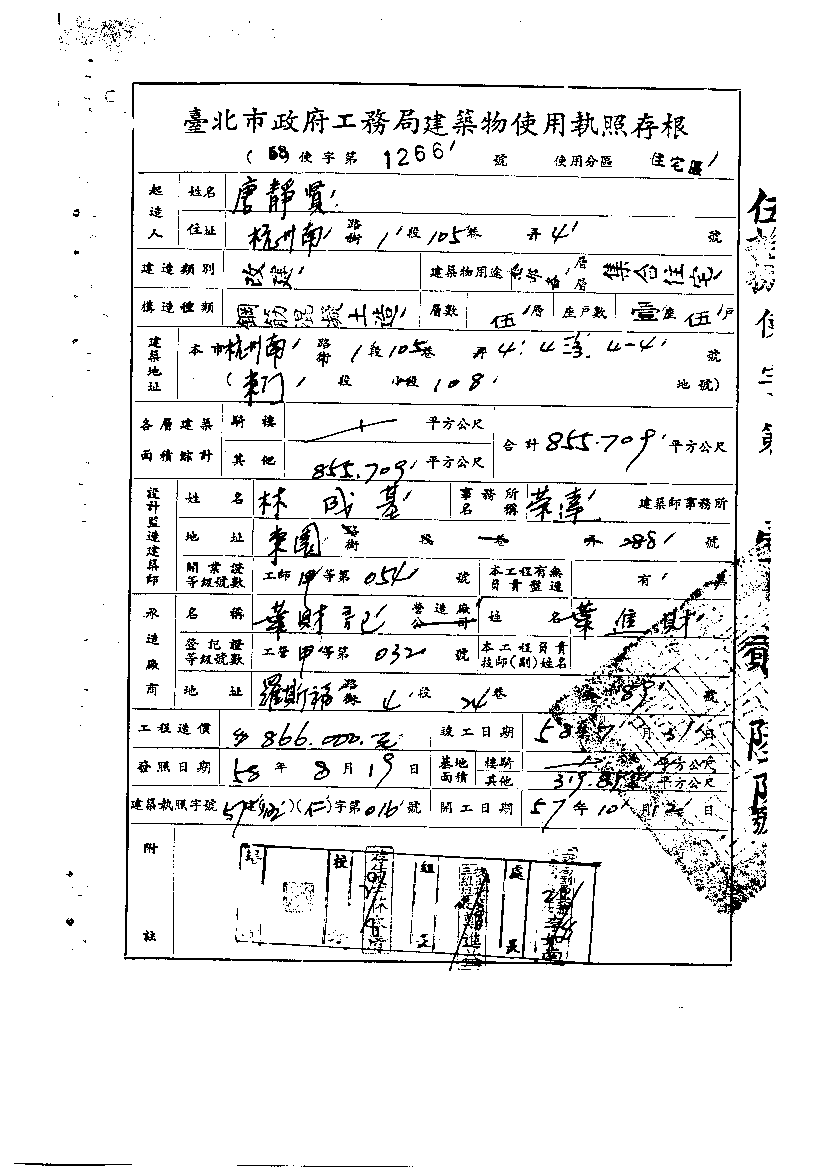 臺北市政府工務局建築物使用執照存根
(58)使字第1266號 使用分區 住宅區
起造人 姓名 唐靜賢
住址 杭州南路街1段105巷弄4號
建造類別 改建 建築物用途 層層 集合住宅
構造種類 鋼筋混凝土造 層數 伍層 座戶數 壹座伍戶
建築地址 本市杭州南路街1段105巷弄4. 4-4號
(東門段小段108地號)
各層建築面積綜計 騎樓 平方公尺 合計855.709平方公尺
其他 855.709平方公尺
設計監造建築師 姓名 林成基 事務所名稱 榮達 建築師事務所
地址 東園路街段巷弄288號
開業證等級號數 工師甲等第054號 本工程有無負責監造 有 無
承造廠商 名稱 葉財記 營造廠公司 姓名 葉進財
登記證等級號數 工營甲等第032號 本工程負責技師(副)姓名
地址 羅斯福路街4段24巷 號
工程造價 866.000.元 竣工日期 58年7月31日
發照日期 58年8月19日 基地面積 樓騎 平方公尺
其他 平方公尺
建築執照字號 57建()(仁)字第016號 開工日期 57年10月12日
附註
組 處